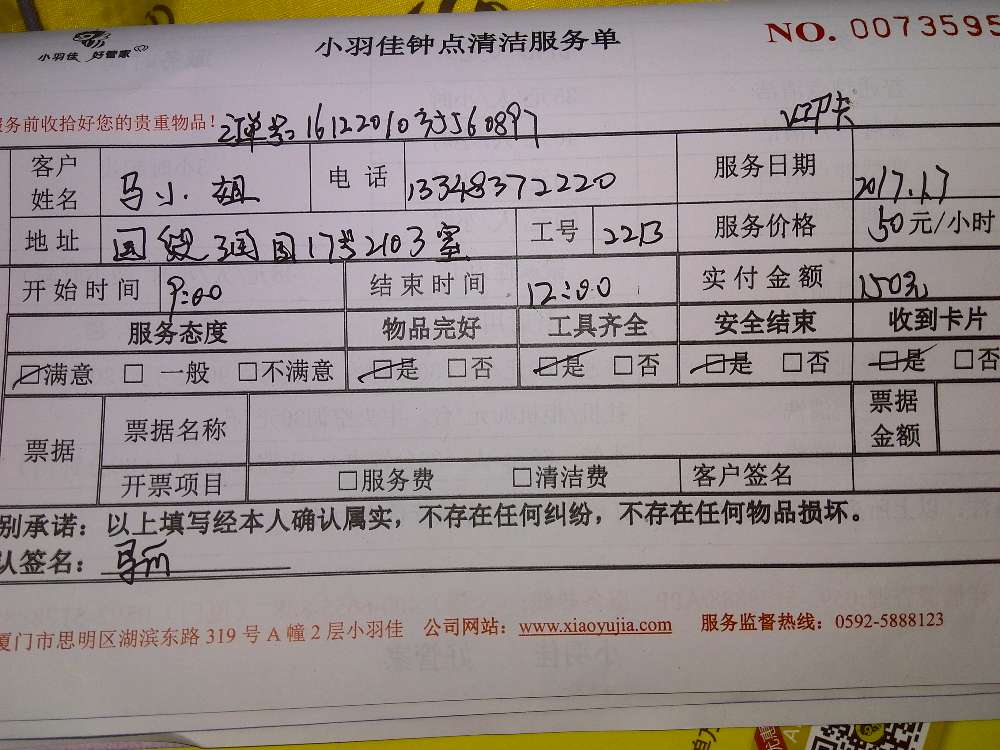 小羽佳 好管家
小羽佳钟点清洁服务单
NO. 0073595
服务前收拾好您的贵重物品！
订单号:
VIP卡
客户姓名 马小姐 电话 13348372220 服务日期 2017.1.7
地址 17号2103室 工号 2213 服务价格 50元/小时
开始时间 9:00 结束时间 12:00 实付金额 150元
服务态度 物品完好 工具齐全 安全结束 收到卡片
☑满意 □ 一般 □不满意 ☑是 □否 ☑是 □否 ☑是 □否 ☑是 □否
票据 票据名称 票据金额
开票项目 □服务费 □清洁费 客户签名
别承诺：以上填写经本人确认属实，不存在任何纠纷，不存在任何物品损坏。
认签名：
厦门市思明区湖滨东路 319 号 A 幢 2 层小羽佳 公司网站：www.xiaoyujia.com 服务监督热线：0592-5888123